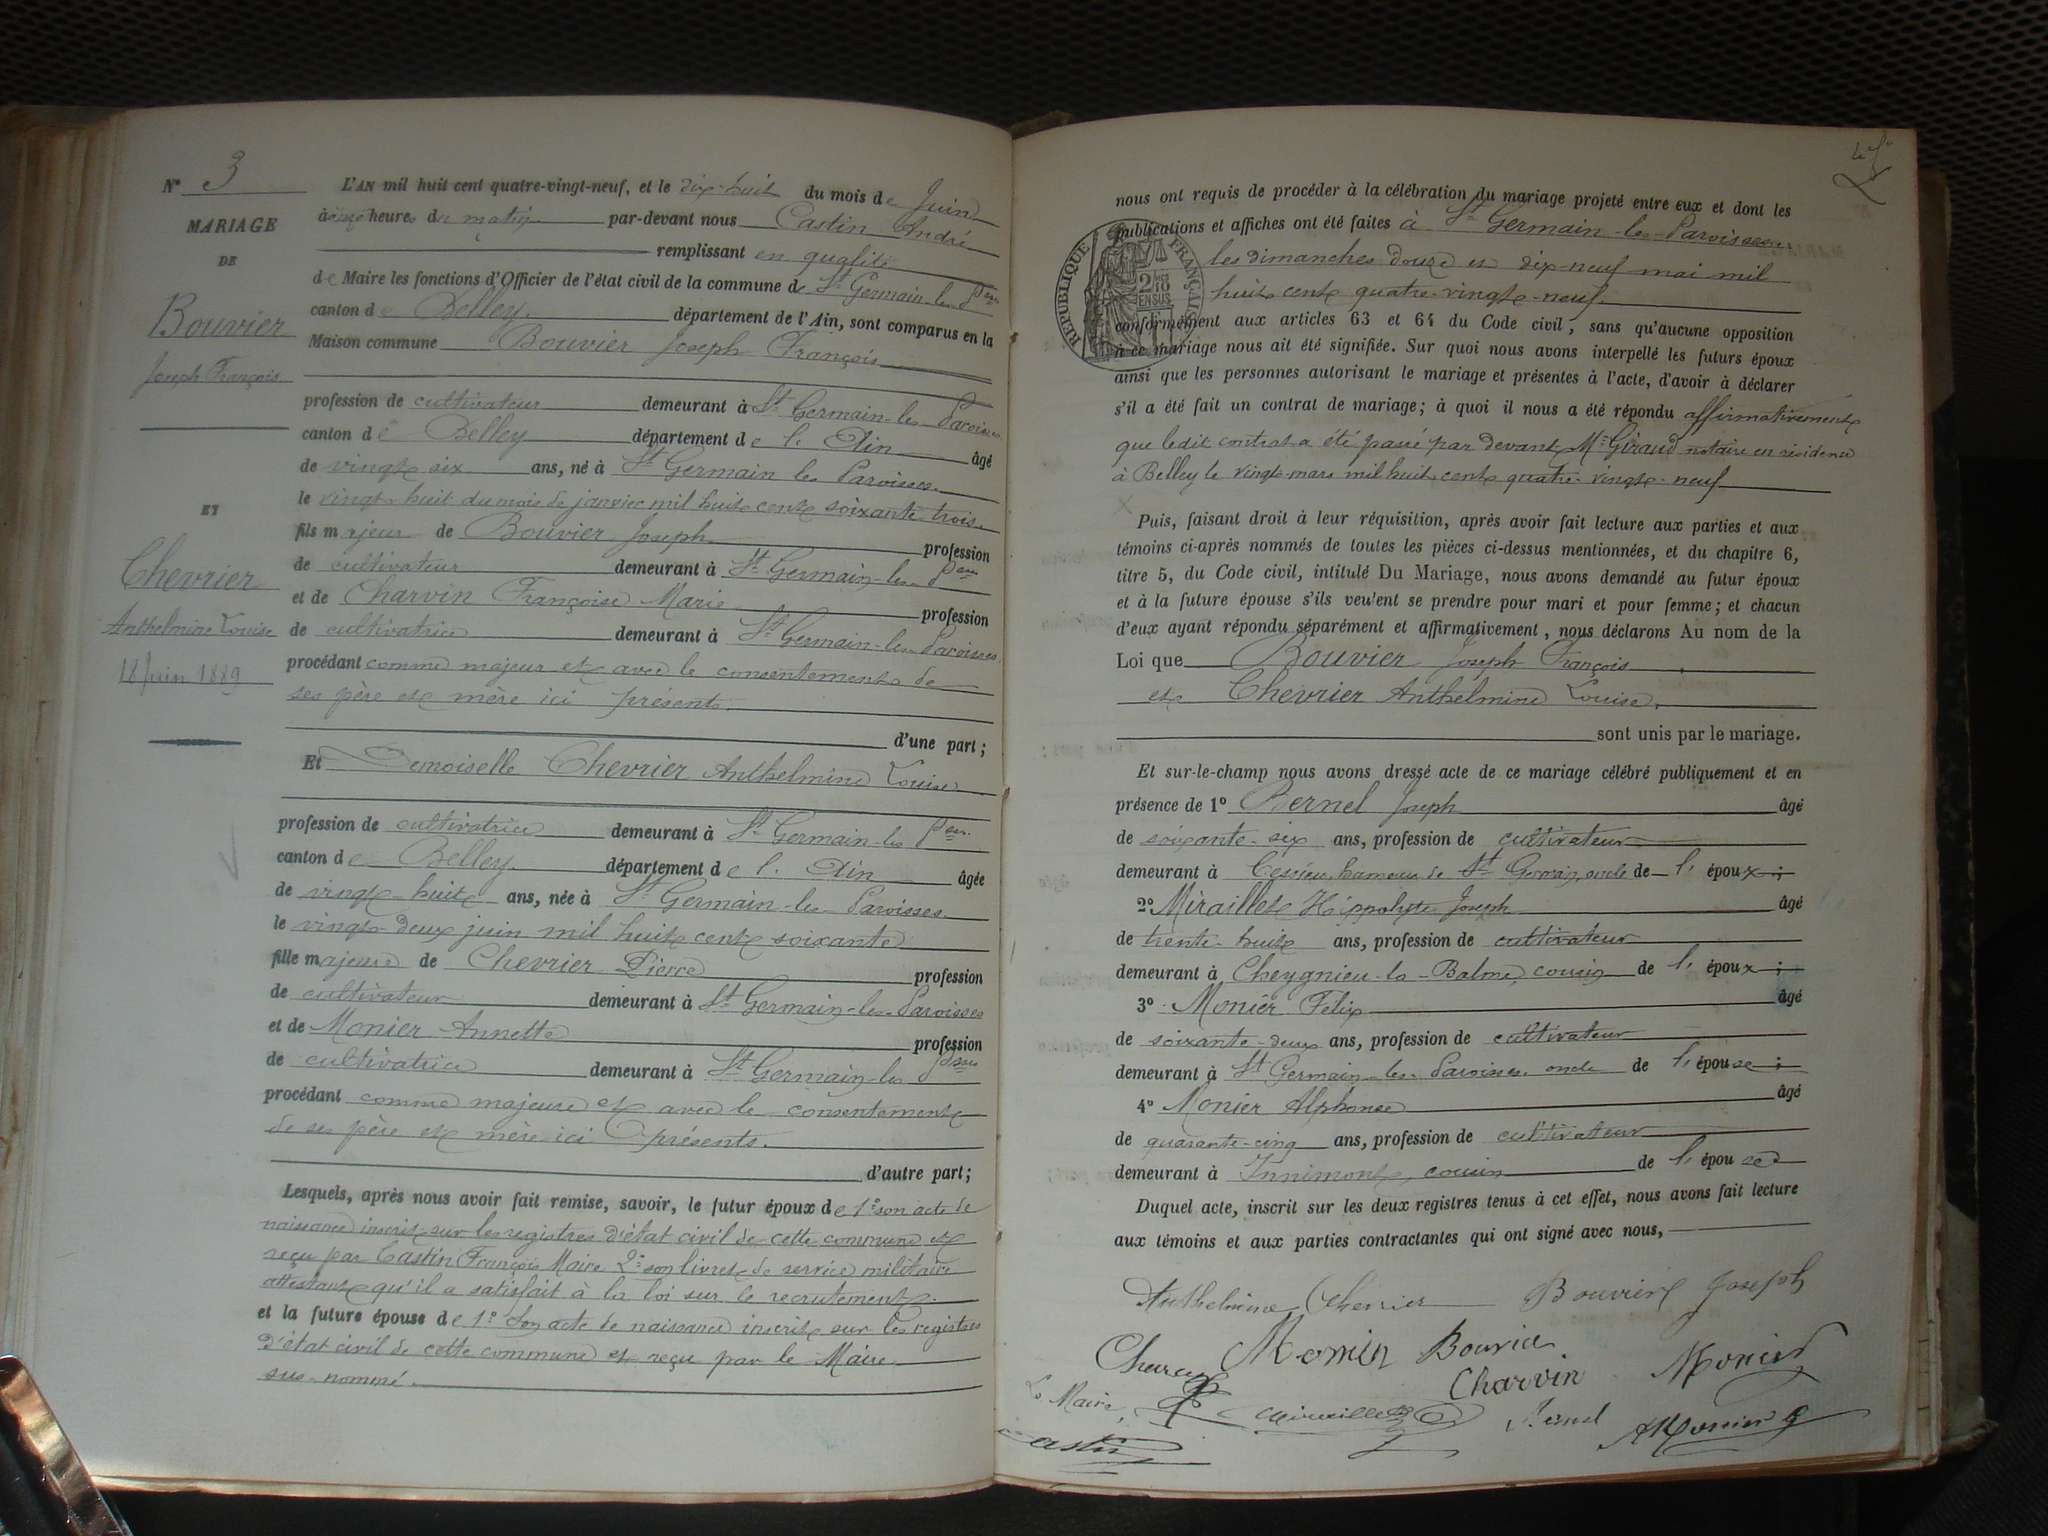 N° 3
MARIAGE
DE
Bouvier
Joseph François
ET
Chevrier
Anthelmine Louise
18 Juin 1889
L'AN mil huit cent quatre-vingt-neuf, et le dix-huit du mois de Juin
à onze heures du matin par-devant nous Castin André
remplissant en qualité
de Maire les fonctions d'Officier de l'état civil de la commune de St Germain-les-Pses
canton de Belley département de l'Ain, sont comparus en la
Maison commune Bouvier Joseph François
profession de cultivateur demeurant à St Germain-les-Paroisses
canton de Belley département de l'Ain âgé
de vingt-six ans, né à St Germain les Paroisses
le vingt-huit du mois de janvier mil huit cent soixante trois
fils majeur de Bouvier Joseph profession
de cultivateur demeurant à St Germain-les-Pses
et de Charvin Françoise Marie profession
de cultivatrice demeurant à St Germain-les-Paroisses
procédant comme majeur et avec le consentement de
ses père et mère ici présents.
d'une part;
Et Demoiselle Chevrier Anthelmine Louise
profession de cultivatrice demeurant à St Germain-les Pses
canton de Belley département de l'Ain âgée
de vingt-huit ans, née à St Germain-les-Paroisses
le vingt-deux juin mil huit cent soixante
fille majeure de Chevrier Pierre profession
de cultivateur demeurant à St Germain-les-Paroisses
et de Monier Annette profession
de cultivatrice demeurant à St Germain-les Pses
procédant comme majeure et avec le consentement
de ses père et mère ici présents.
d'autre part;
Lesquels, après nous avoir fait remise, savoir, le futur époux de 1° son acte de
naissance inscrit sur les registres d'état civil de cette commune et
reçu par Castin François Maire 2° son livret de service militaire
attestant qu'il a satisfait à la loi sur le recrutement.
et la future épouse de 1° Son acte de naissance inscrit sur les registres
d'état civil de cette commune et reçu par le Maire
sus-nommé.
nous ont requis de procéder à la célébration du mariage projeté entre eux et dont les
publications et affiches ont été faites à St Germain-les-Paroisses
les dimanches douze et dix-neuf mai mil
huit cent quatre-vingt-neuf.
RÉPUBLIQUE FRANÇAISE
conformément aux articles 63 et 64 du Code civil, sans qu'aucune opposition
à ce mariage nous ait été signifiée. Sur quoi nous avons interpellé les futurs époux
ainsi que les personnes autorisant le mariage et présentes à l'acte, d'avoir à déclarer
s'il a été fait un contrat de mariage; à quoi il nous a été répondu affirmativement
que ledit contrat a été passé par devant Me Giraud notaire en résidence
à Belley le vingt mars mil huit cent quatre-vingt-neuf
Puis, faisant droit à leur réquisition, après avoir fait lecture aux parties et aux
témoins ci-après nommés de toutes les pièces ci-dessus mentionnées, et du chapitre 6,
titre 5, du Code civil, intitulé Du Mariage, nous avons demandé au futur époux
et à la future épouse s'ils veulent se prendre pour mari et pour femme; et chacun
d'eux ayant répondu séparément et affirmativement, nous déclarons Au nom de la
Loi que Bouvier Joseph François
et Chevrier Anthelmine Louise.
sont unis par le mariage.
Et sur-le-champ nous avons dressé acte de ce mariage célébré publiquement et en
présence de 1° Bernel Joseph âgé
de soixante-six ans, profession de cultivateur
demeurant à Cessieu, hameau de St Germain, oncle de l'époux;
2° Miraillet Hippolyte Joseph âgé
de trente-huit ans, profession de cultivateur
demeurant à Cheygnieu-la-Balme, cousin de l'époux;
3° Monier Félix âgé
de soixante-deux ans, profession de cultivateur
demeurant à St Germain-les-Paroisses oncle de l'épouse;
4° Monier Alphonse âgé
de quarante-cinq ans, profession de cultivateur
demeurant à Innimont, cousin de l'épouse
Duquel acte, inscrit sur les deux registres tenus à cet effet, nous avons fait lecture
aux témoins et aux parties contractantes qui ont signé avec nous,
Anthelmine Chevrier Bouvier Joseph
Monier Bouvier
Charvin Monier
Le Maire,
Miraillet Bernel A Monier
Castin